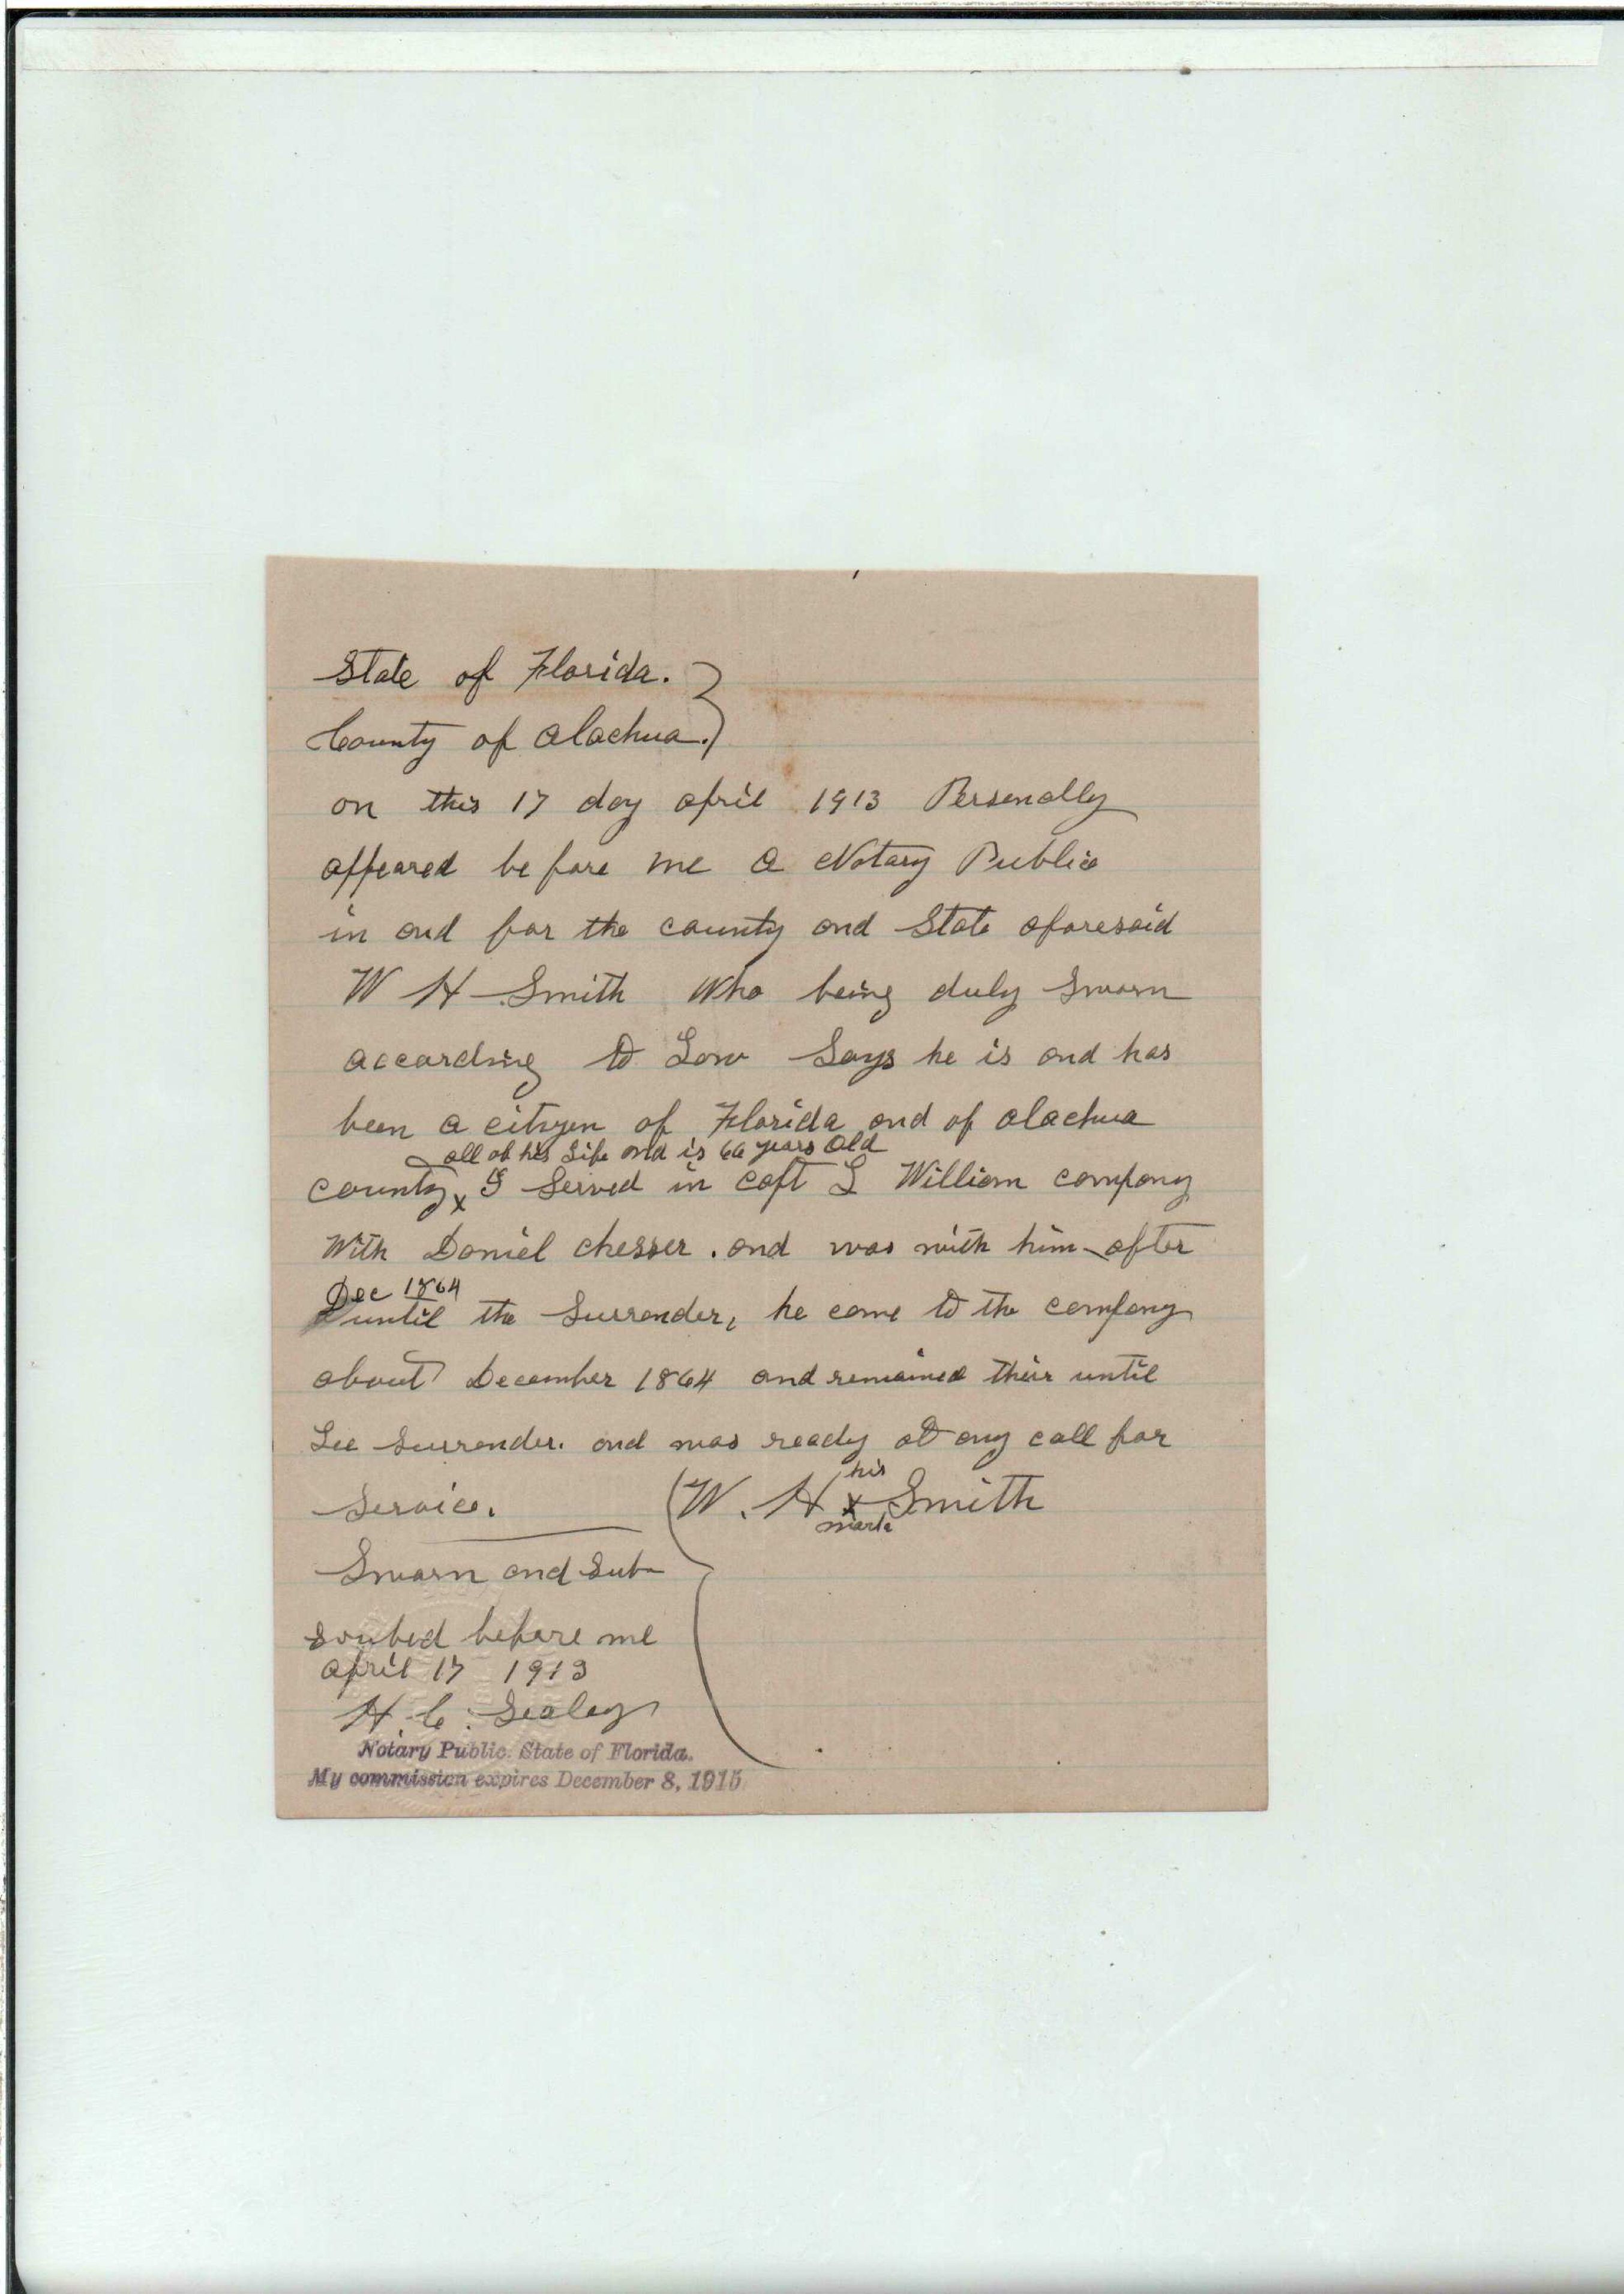 State of Florida.
County of Alachua.
on this 17 day april 1913 Personally
appeared be fore me a Notary Public
in and for the county and State aforesaid
W H Smith Who being duly Sworn
according to Law Says he is and has
been a citizen of Florida and of alachua
all of his life and is 66 years old
county x I Served in Capt L William company
With Daniel chesser . and was with him after
Dec 1864
until the Surrender, he come to the company
about December 1864 and remained their until
Lee Surrender. and was ready at any call for
Service. W. H his x mark Smith
Sworn and Sub
scribed before me
april 17 1913
H. C. Sealey
Notary Public State of Florida.
My commission expires December 8, 1915